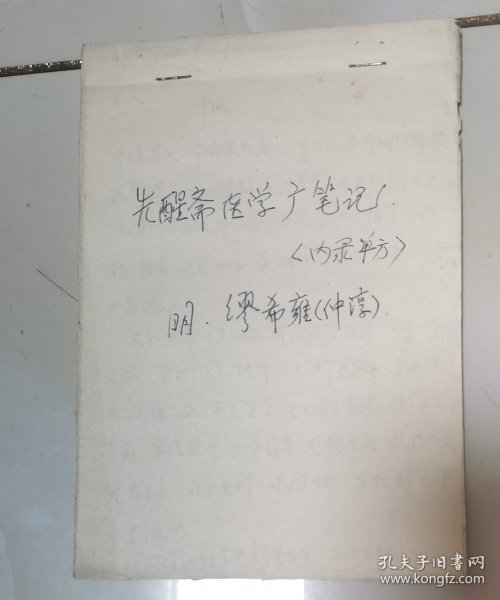 先醒斋医学广笔记
〈内录单方〉
明.缪希雍(仲淳)
孔夫子旧书网
www.kongfz.com